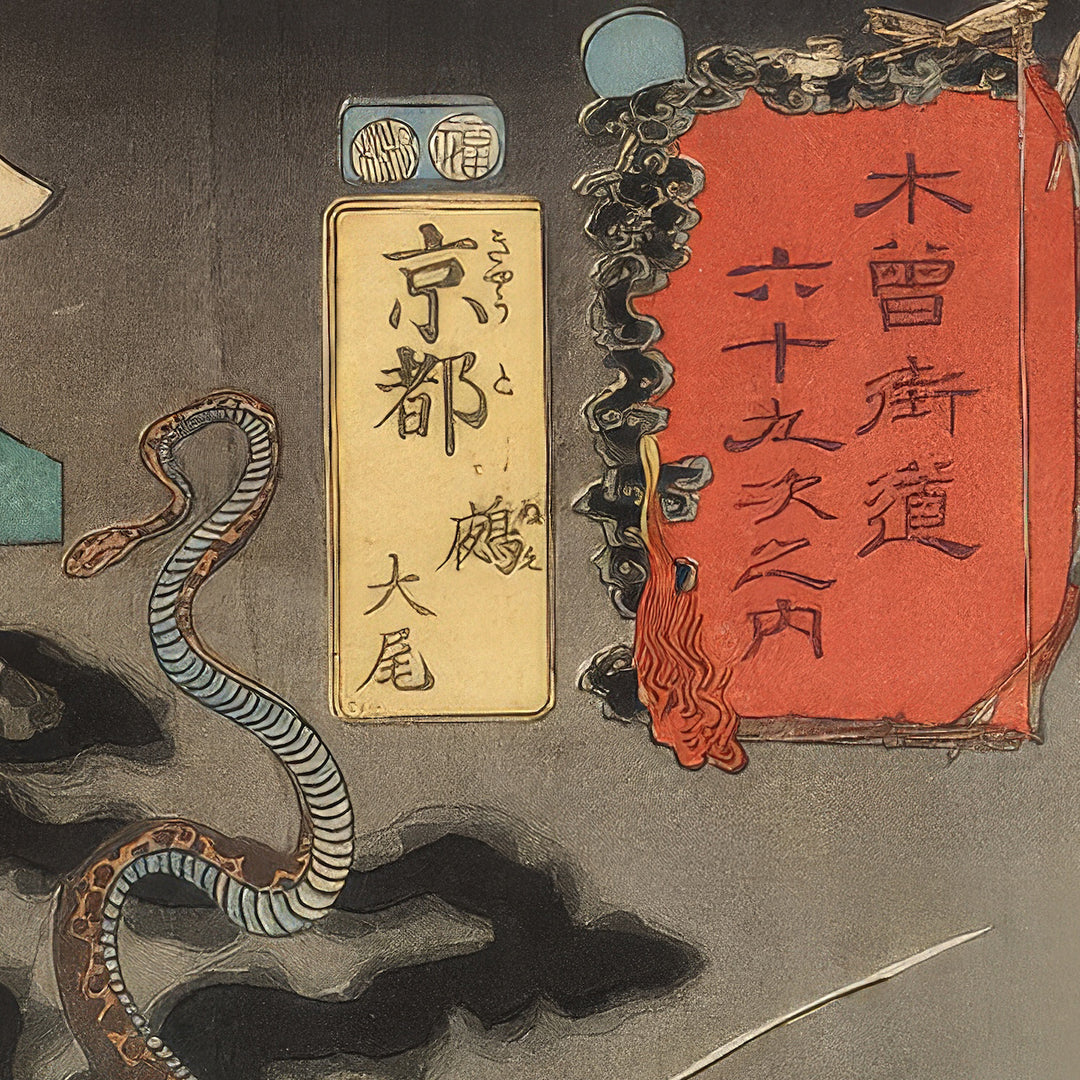 木曾街道
六十九次之内
京都
きやうと
鵺
大尾
福